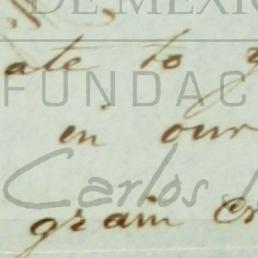 DE MÉXIC
ate to
FUNDAC
in our
Carlos
grain